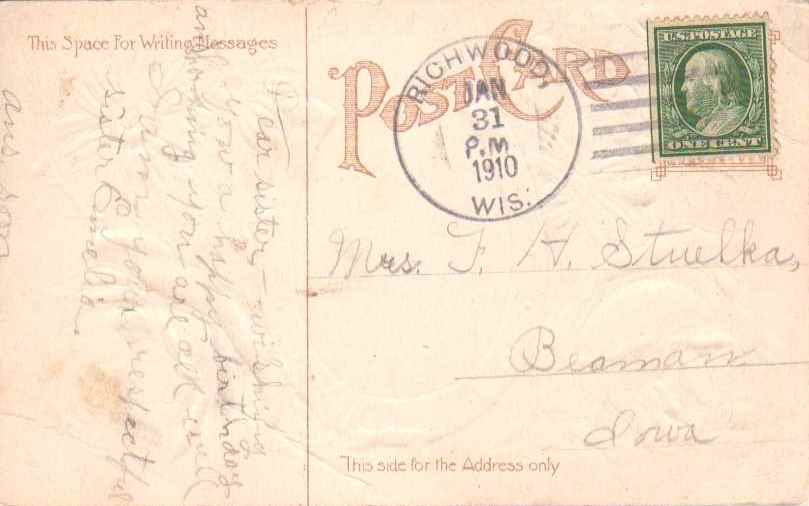 This Space For Writing Messages
POST CARD
RICHWOOD,
JAN
31
P.M
1910
WIS.
U.S. POSTAGE
ONE CENT
Dear sister - wishing
you a happy birthday
an hoping you are all well
I am your respectful
sister Emelia.
ans soon
Mrs. F. H. Stuelka,
Beaman
Iowa
This side for the Address only